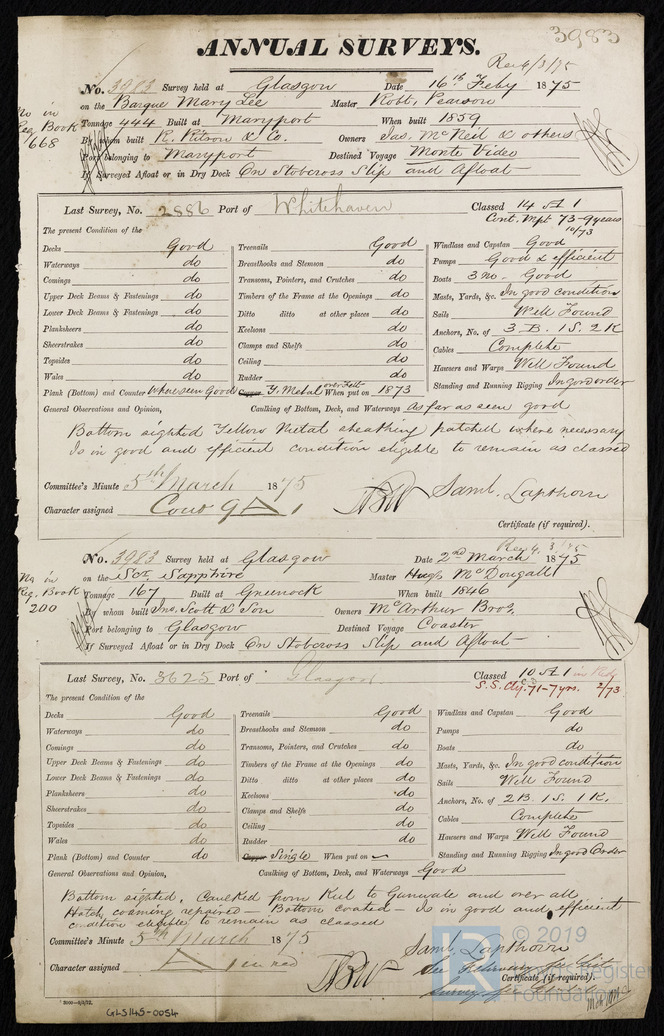 3983
ANNUAL SURVEYS.
Rec 4/3/75
No. 3983 Survey held at Glasgow Date 16th Feby 1875
on the Barque Mary Lee Master Robt. Pearson
No in Reg Book 668
Tonnage 444 Built at Maryport When built 1859
By whom built R. Ritson & Co. Owners Jas. McNeil & others
Port belonging to Maryport Destined Voyage Monte Video
If Surveyed Afloat or in Dry Dock On Stobcross Slip and Afloat
Last Survey, No. 2886 Port of Whitehaven Classed 14 A 1
Cont. Mpt 73-9 years
10/73
The present Condition of the
Decks Good Treenails Good Windlass and Capstan Good
Waterways do Breasthooks and Stemson do Pumps Good & efficient
Comings do Transoms, Pointers, and Crutches do Boats 3 No. Good
Upper Deck Beams & Fastenings do Timbers of the Frame at the Openings do Masts, Yards, &c. In good condition
Lower Deck Beams & Fastenings do Ditto ditto at other places do Sails Well Found
Planksheers do Keelsons do Anchors, No. of 3 B. 1 S. 2 K
Sheerstrakes do Clamps and Shelfs do Cables Complete
Topsides do Ceiling do Hawsers and Warps Well Found
Wales do Rudder do Standing and Running Rigging In good order
Plank (Bottom) and Counter Where seen Good Copper Y. Metal over Felt When put on 1873
General Observations and Opinion, Caulking of Bottom, Deck, and Waterways as far as seen good
Bottom sighted Yellow Metal sheathing patched where necessary
Is in good and efficient condition eligible to remain as classed
Committee's Minute 5th March 1875
Saml. Lapthorn
Character assigned Cont 9 A 1
Certificate (if required).
Rec 4/3/75
No. 3983 Survey held at Glasgow Date 2nd March 1875
on the Scr Sapphire Master Hugh McDougall
No in Reg. Book 200
Tonnage 167 Built at Greenock When built 1846
By whom built Jno. Scott & Son Owners McArthur Bros.
Port belonging to Glasgow Destined Voyage Coaster
If Surveyed Afloat or in Dry Dock On Stobcross Slip and Afloat
Last Survey, No. 3625 Port of Glasgow Classed 10 A 1 in Red
S.S. Cly. 71-7 yrs. 2/73
The present Condition of the
Decks Good Treenails Good Windlass and Capstan Good
Waterways do Breasthooks and Stemson do Pumps do
Comings do Transoms, Pointers, and Crutches do Boats do
Upper Deck Beams & Fastenings do Timbers of the Frame at the Openings do Masts, Yards, &c. In good condition
Lower Deck Beams & Fastenings do Ditto ditto at other places do Sails Well Found
Planksheers do Keelsons do Anchors, No. of 2 B. 1 S. 1 K.
Sheerstrakes do Clamps and Shelfs do Cables Complete
Topsides do Ceiling do Hawsers and Warps Well Found
Wales do Rudder do Standing and Running Rigging In good Order
Plank (Bottom) and Counter do Copper Single When put on
General Observations and Opinion, Caulking of Bottom, Deck, and Waterways Good
Bottom sighted, Caulked from Keel to Gunwale and over all
Hatch coaming repaired - Bottom coated - Is in good and efficient
condition eligible to remain as classed
Committee's Minute 5th March 1875
Saml. Lapthorn
Character assigned A 1 in red
Certificate (if required).
2000-3/2/72.
GLS145-0054
© 2019
Lloyd's Register
Foundation